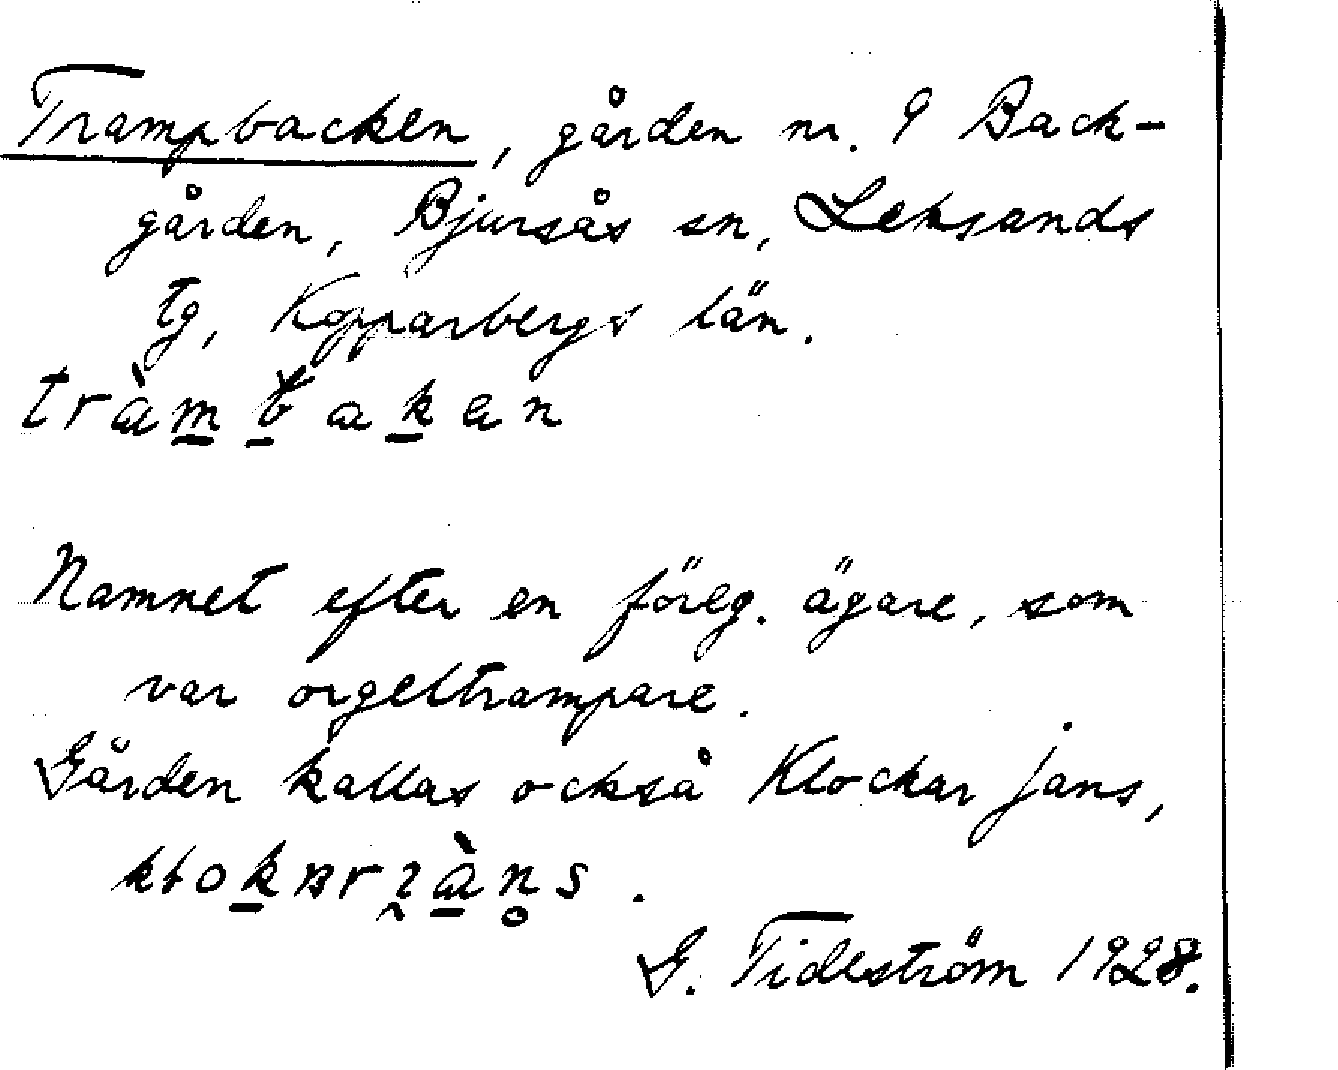 Trampbacken, gården nr. 9 Back-
gården, Bjursås sn, Leksands
tg, Kopparbergs län.
tràm̲b̲ak̲an
Namnet efter en föreg. ägare, som
var orgeltrampare.
Gården kallas också Klockar jans,
G. Tideström 1928.